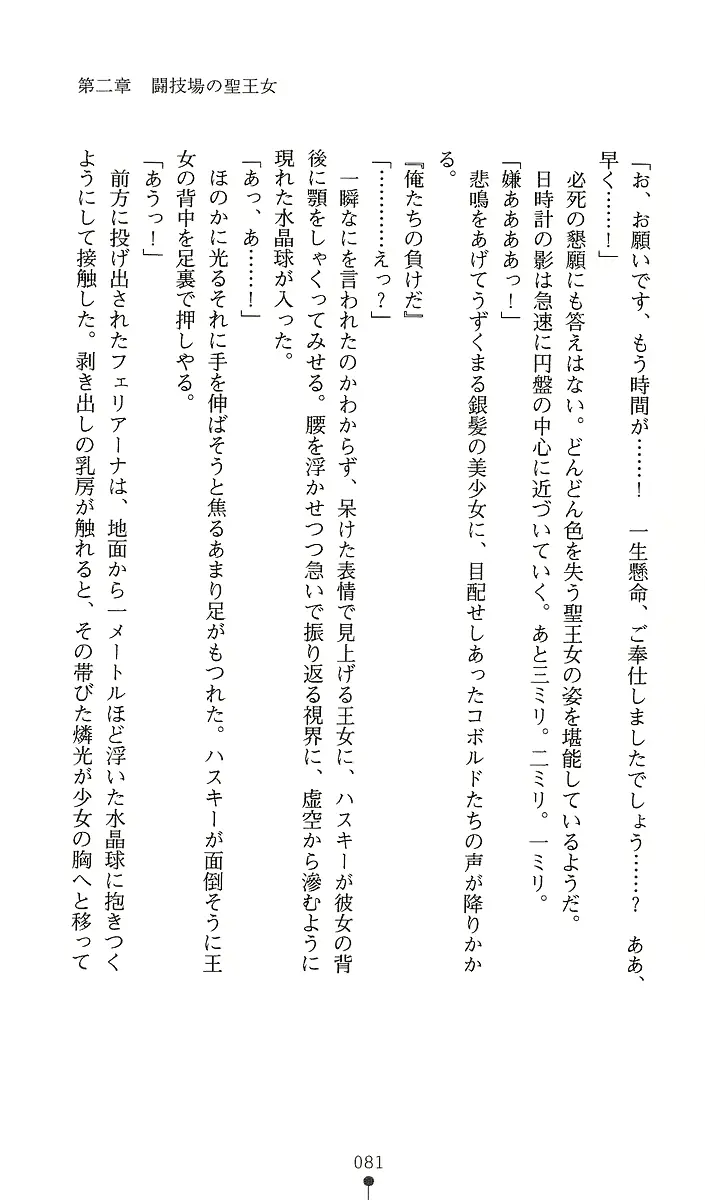 第二章　闘技場の聖王女
「お、お願いです、もう時間が……！　一生懸命、ご奉仕しましたでしょう……？　ああ、
早く……！」
　必死の懇願にも答えはない。どんどん色を失う聖王女の姿を堪能しているようだ。
　日時計の影は急速に円盤の中心に近づいていく。あと三ミリ。二ミリ。一ミリ。
「嫌ああああっ！」
　悲鳴をあげてうずくまる銀髪の美少女に、目配せしあったコボルドたちの声が降りかか
る。
『俺たちの負けだ』
「…………えっ？」
　一瞬なにを言われたのかわからず、呆けた表情で見上げる王女に、ハスキーが彼女の背
後に顎をしゃくってみせる。腰を浮かせつつ急いで振り返る視界に、虚空から滲むように
現れた水晶球が入った。
「あっ、あ……！」
　ほのかに光るそれに手を伸ばそうと焦るあまり足がもつれた。ハスキーが面倒そうに王
女の背中を足裏で押しやる。
「あうっ！」
　前方に投げ出されたフェリアーナは、地面から一メートルほど浮いた水晶球に抱きつく
ようにして接触した。剥き出しの乳房が触れると、その帯びた燐光が少女の胸へと移って
081